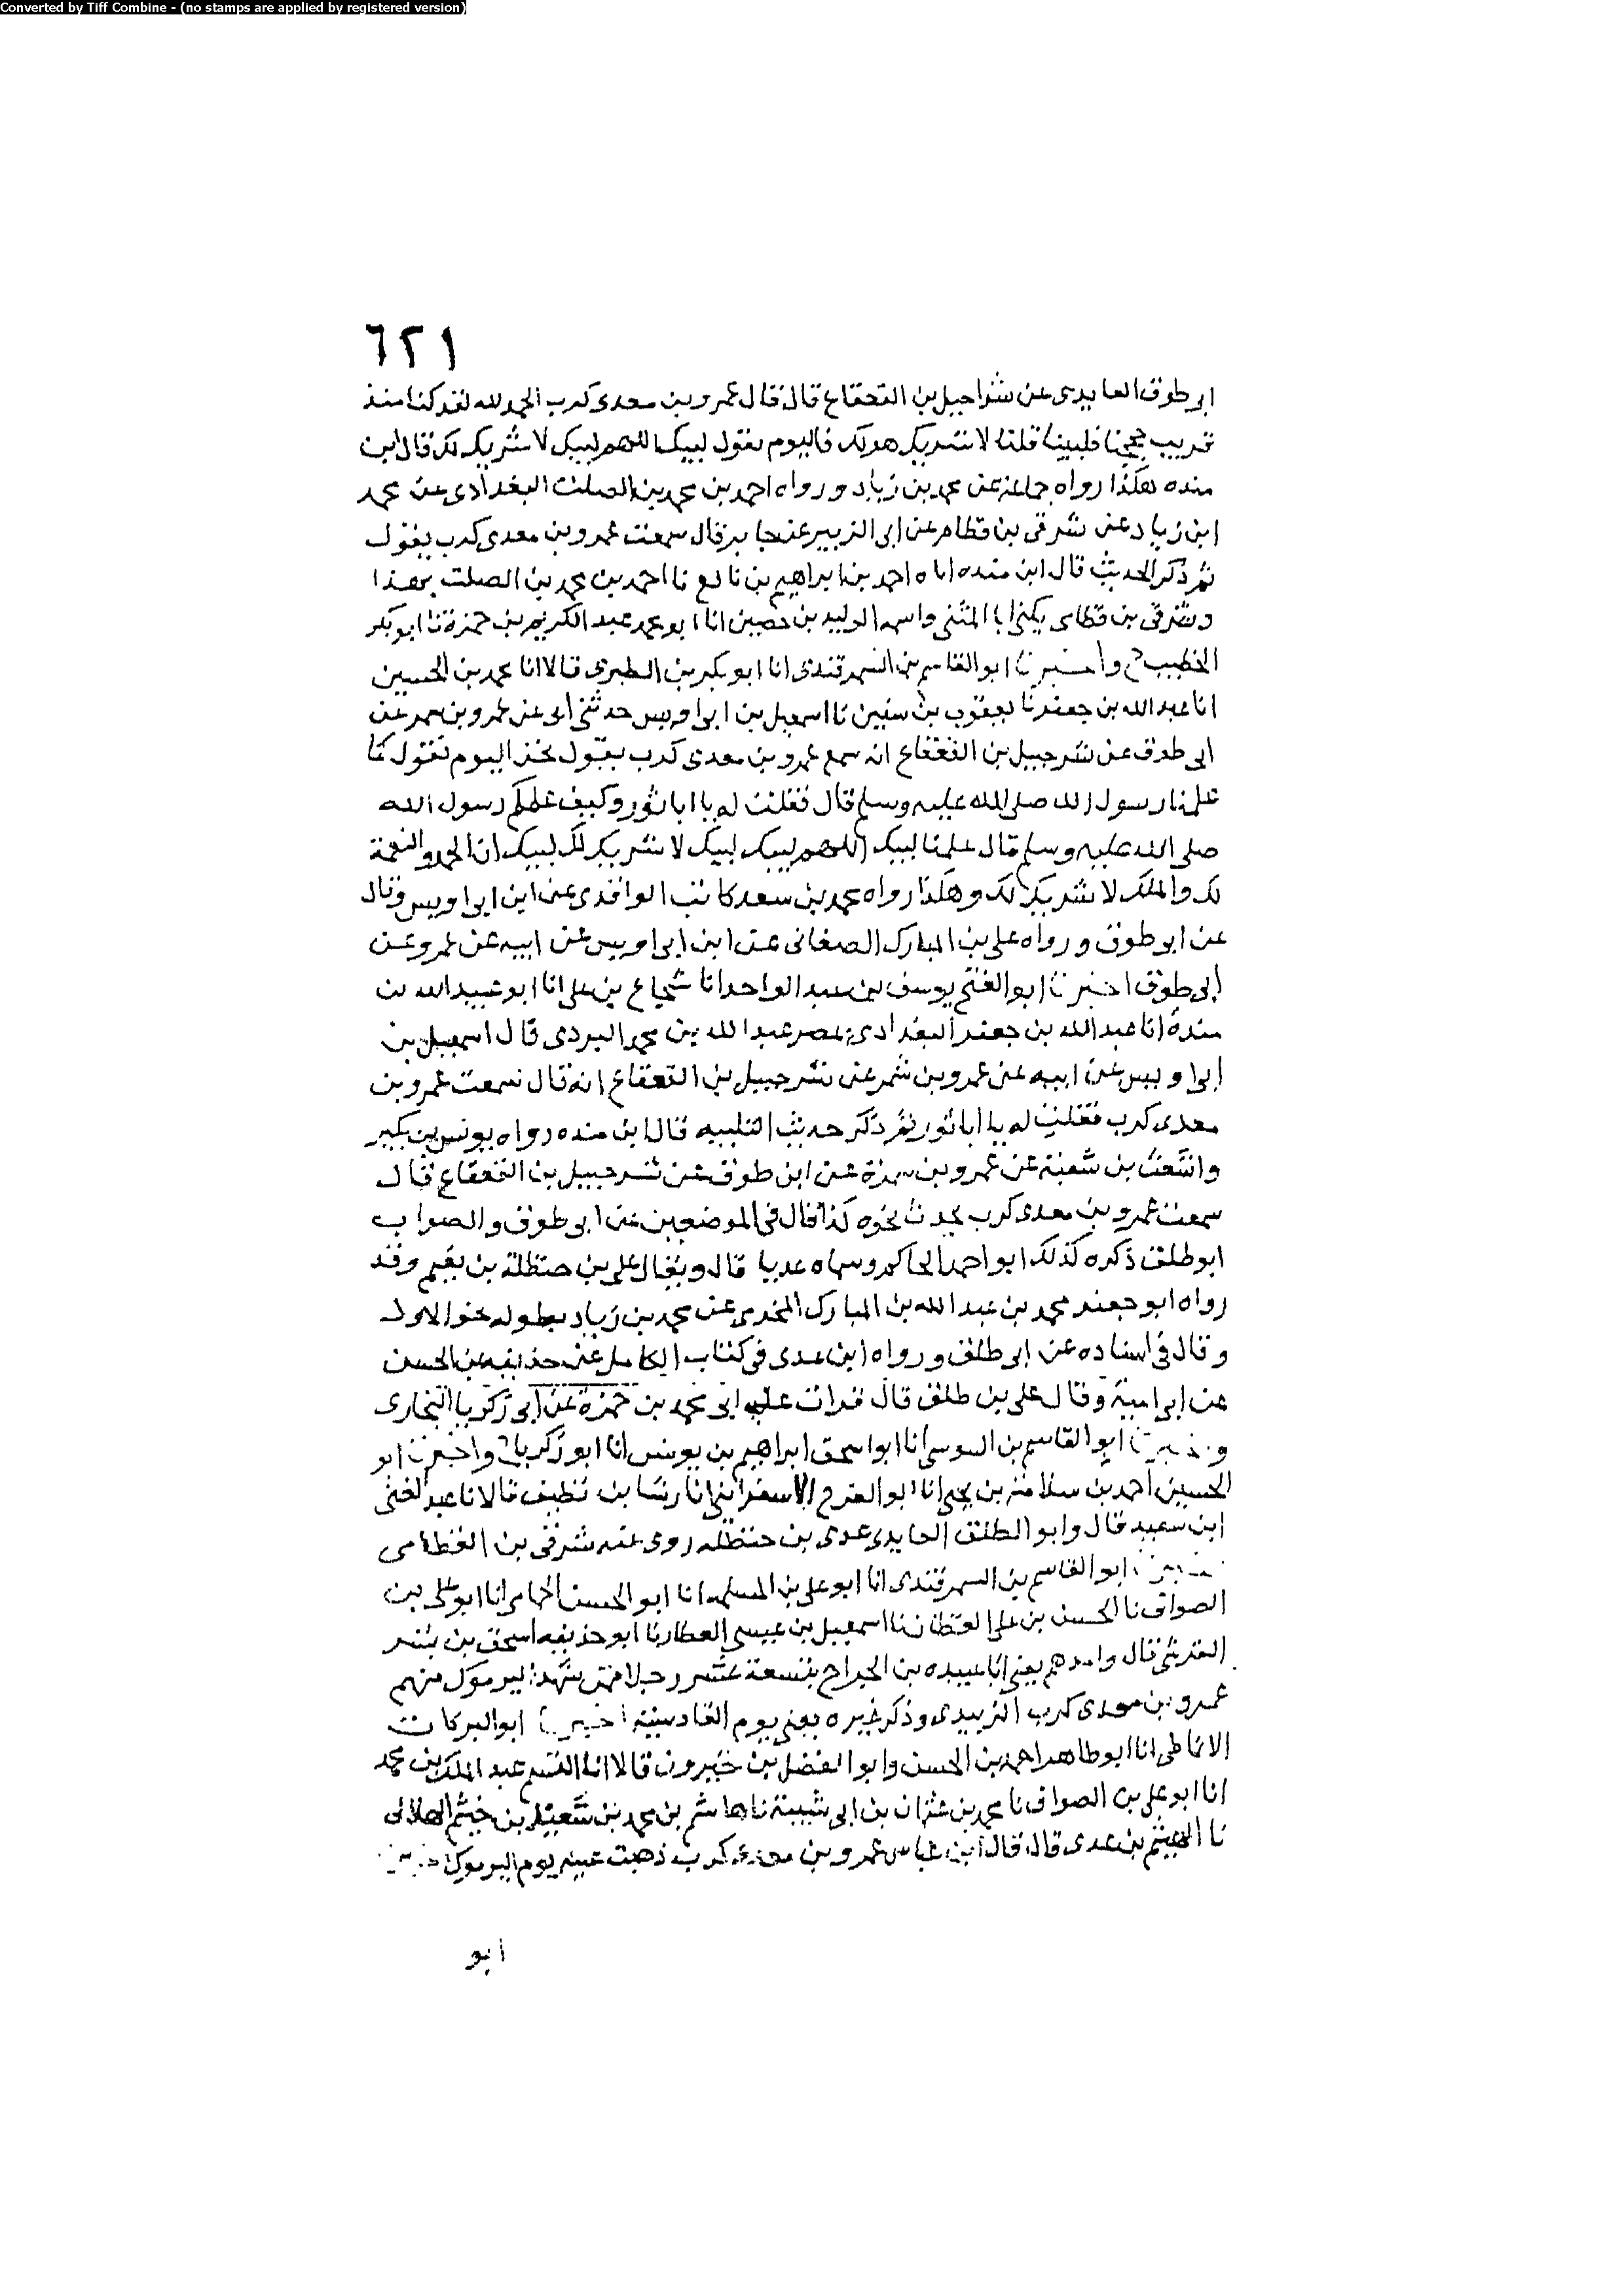 Converted by Tiff Combine - (no stamps are applied by registered version)
٦٢١
ابو طوق العايدى عن شراحيل بن القعقاع قال قال عمرو بن معدى كرب الحمد لله لقد كنا منذ
قريب حججنا فلبينا قلنا لا شريك هو لك فاليوم نقول لبيك اللهم لبيك لا شريك لك قال ابن
منده هكذا رواه جماعة عن محمد بن زياد ورواه احمد بن محمد بن الصلت البغدادى عن محمد
ابن زياد عن شرقى بن قطام عن ابى الزبير عن جابر قال سمعت عمرو بن معدى كرب يقول
ثم ذكر الحديث قال ابن منده اناه احمد بن ابراهيم بن نافع نا احمد بن محمد بن الصلت بهذا
وشرقى بن قطامى يكنى ابا المثنى واسمه الوليد بن حصين انا ابو محمد عبد الكريم بن حمزة نا ابو بكر
الخطيب ح واخبرنا ابو القاسم بن السمرقندى انا ابو بكر بن الطبرى قالا انا محمد بن الحسين
انا عبد الله بن جعفر نا يعقوب بن سفين نا اسمعيل بن ابى اويس حدثنى ابى عن عمرو بن شمر عن
ابى طوق عن شرحبيل بن القعقاع انه سمع عمرو بن معدى كرب يقول نحن اليوم نقول كما
علمنا رسول الله صلى الله عليه وسلم قال فقلت له يا ابا ثور وكيف علمكم رسول الله
صلى الله عليه وسلم قال علمنا لبيك اللهم لبيك لبيك لا شريك لك لبيك ان الحمد والنعمة
لك والملك لا شريك لك وهكذا رواه محمد بن سعد كاتب الواقدى عن ابن ابى اويس وقال
عن ابو طوق ورواه على بن المبارك الصغانى عن ابن ابى اويس عن ابيه عن عمرو عن
ابى طوق اخبرنا ابو الفتح يوسف بن عبد الواحد انا شجاع بن على انا ابو عبيد الله بن
مندة انا عبد الله بن جعفر البغدادى بمصر عبد الله بن محمد البردى قال اسمعيل بن
ابى اويس عن ابيه عن عمرو بن شمر عن شرحبيل بن القعقاع انه قال سمعت عمرو بن
معدى كرب فقلت له يا ابا ثور ثم ذكر حديث التلبيه قال ابن منده رواه يونس بن بكير
واشعث بن شعبة عن عمرو بن عن ابن طوق عن شرحبيل بن القعقاع قال
سمعت عمرو بن معدى كرب يحدث نحوه كذا قال فى الموضعين عن ابى طوق والصواب
ابو طلق ذكره كذلك ابو احمد الحاكم وسماه عديا قال ويقال على بن حنظلة بن نعيم وقد
رواه ابو جعفر محمد بن عبد الله بن المبارك المخرمى عن محمد بن زياد بطوله نحو الاول
وقال فى اسناده عن ابى طلق ورواه ابن عدى فى كتاب الكامل عن حذيفه عن الحسن
عن ابى امية وقال على بن طلق قال قرات على ابى محمد بن حمزة عن ابى زكريا البخارى
واخبرنا ابو القاسم بن السوسى انا ابو اسحق ابراهيم بن يونس انا ابو زكريا ح واخبرنا ابو
الحسين احمد بن سلامة بن يحيى انا ابو الفرج الاسفرائينى انا رشا بن نظيف قالا نا عبد الغنى
ابن سعيد قال وابو الطلق العايدى عدى بن حنظله روى عنه شرقى بن القطامى
اخبرنا ابو القاسم بن السمرقندى انا ابو على بن المسلمه انا ابو الحسن الحمامى انا ابو على بن
الصواف نا الحسن بن على القطان نا اسمعيل بن عيسى العطار نا ابو حذيفه اسحق بن بشر
القرشى قال وامدهم يعنى ابا عبيده بن الجراح بتسعة عشر رجلا ممن شهد اليرموك منهم
عمرو بن معدى كرب الزبيدى وذكر غيره يعنى يوم القادسية اخبرنا ابو البركات
الانماطى انا ابو طاهر احمد بن الحسن وابو الفضل بن خيرون قالا انا القسم عبد الملك بن محمد
انا ابو على بن الصواف نا محمد بن عثمان بن ابى شيبة نا هاشم بن محمد بن سعيد بن خثيم الهلالى
نا الهيثم بن عدى قال قال ابن عباس عمرو بن معدى كرب ذهبت عينه يوم اليرموك اخبرنا
ابو